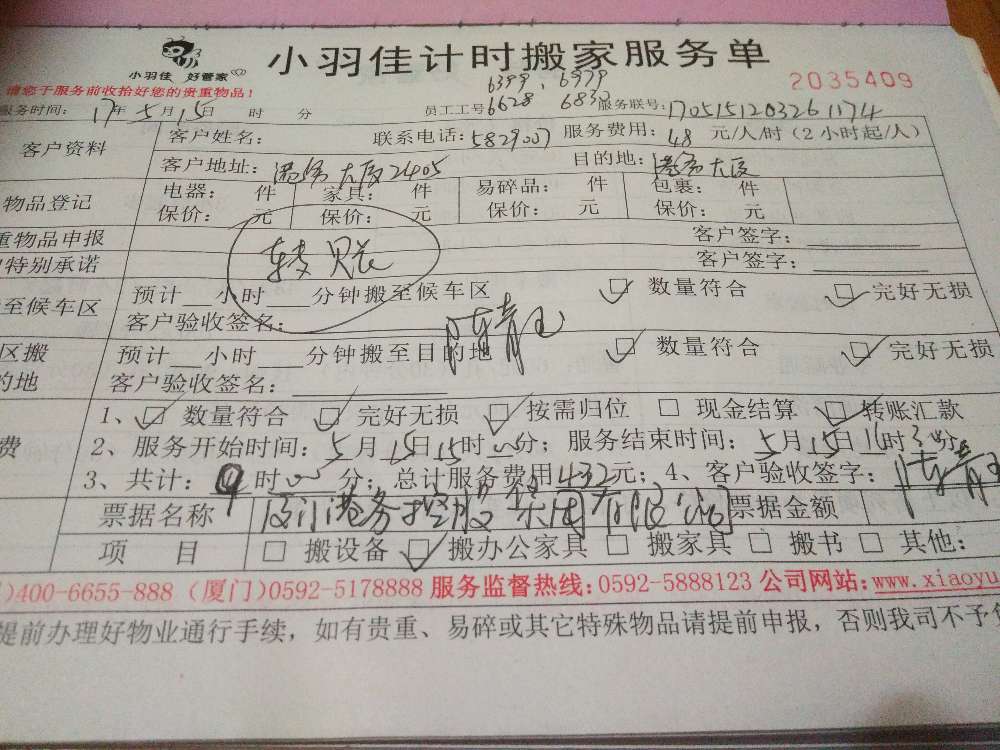 小羽佳计时搬家服务单
小羽佳 好管家
2035409
请您于服务前收拾好您的贵重物品！
服务时间：17年5月15日 时 分 员工工号 6399、6979 6628 6832 服务联号：170515120326 1174
客户资料 客户姓名： 联系电话：5829007 服务费用：48 元/人/时（2小时起/人）
客户地址：港务大厦2405 目的地：港务大厦
物品登记 电器： 件 家具： 件 易碎品： 件 包裹： 件
保价： 元 保价： 元 保价： 元 保价： 元
重物品申报 客户签字：
特别承诺 转账 客户签字：
至候车区 预计 小时 分钟搬至候车区 数量符合 完好无损
客户验收签名：
区搬 预计 小时 分钟搬至目的地 数量符合 完好无损
的地 客户验收签名：
1、 数量符合 完好无损 按需归位 现金结算 转账汇款
费 2、服务开始时间：5月15日15时00分；服务结束时间：5月15日
3、共计：9时00分；总计服务费用432元；4、客户验收签字：
票据名称 厦门港务控股集团有限公司 票据金额
项 目 搬设备 搬办公家具 搬家具 搬书 其他：
)400-6655-888 (厦门)0592-5178888 服务监督热线：0592-5888123 公司网站：www.xiaoyu
提前办理好物业通行手续，如有贵重、易碎或其它特殊物品请提前申报，否则我司不予